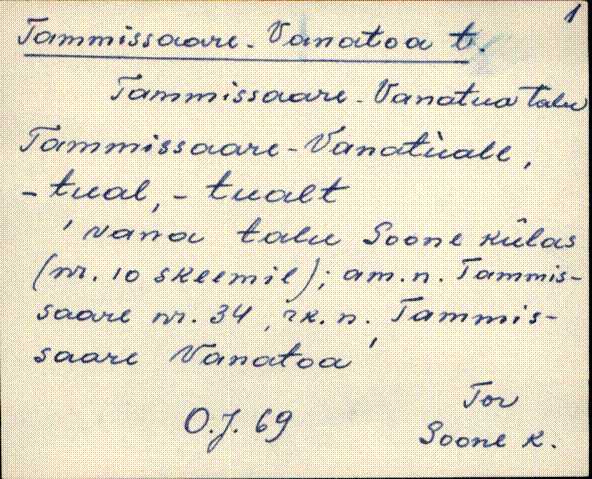 1
Tammissaare-Vanatoa t.
Tammissaare-Vanatua talu
Tammissaare-Vanatùall,
-tual, -tualt
'vana talu Soone külas
(nr. 10 skeemil); am. n. Tammis-
saare nr. 34, rk. n. Tammis-
saare Vanatoa'
O.J. 69
Tor
Soone k.